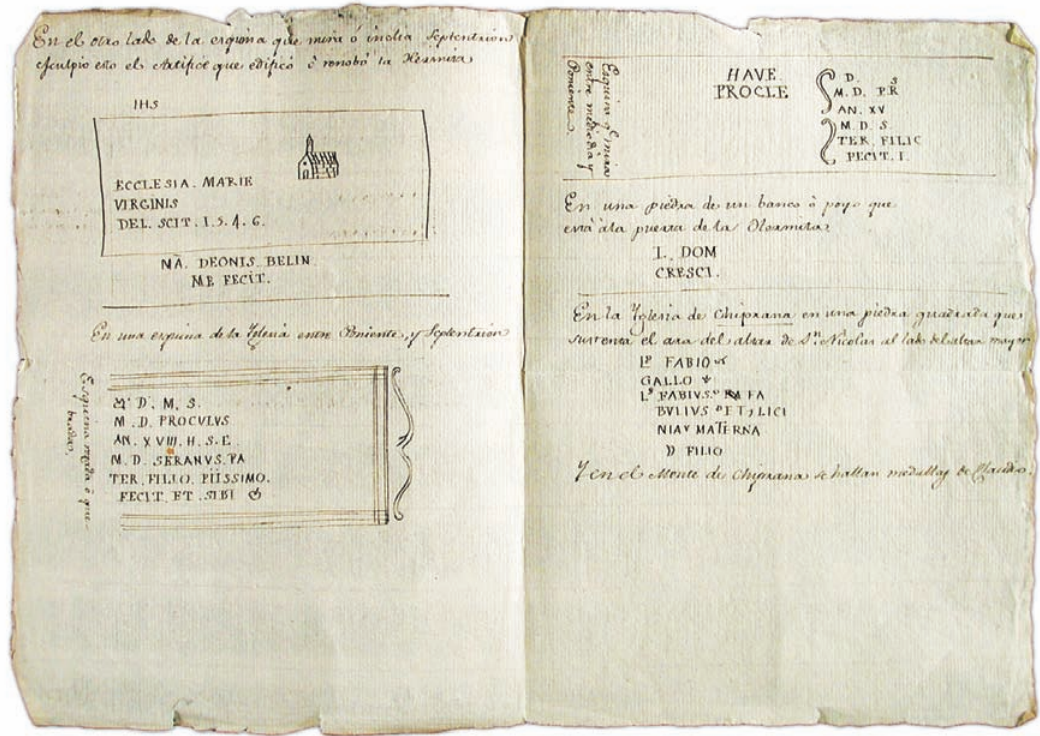 En el otro lado de la esquina que mira ó inclta Septentrion
esculpio esto el Artifice que edificó ô renobó la Hermita
IHS
ECCLESIA. MARIE
VIRGINIS
DEL. SCIT. I. 5. 4. 6.
NÀ. DEONIS BELIN
ME FECIT.
En una esquina de la Yglesia entre Poniente, y Septentrion
Esquina media ê que-
brada.
D. M. S.
M. D. PROCVLVS
AN. XVIII. H. S. E.
M. D. SERANVS. PA
TER. FILIO. PIISSIMO.
FECIT. ET. SIBI
Esquina q.e mira
entre mediodia y
Poniente.
HAVE.
PROCLE
D. S
M. D. P.R
AN. XV
M. D. S.
TER. FILIC
FECIT. I.
En una piedra de un banco ô poyo que
está âla puerta de la Hermita,
I. DOM
CRESCI.
En la Yglesia de Chiprana en una piedra quadrada que
sustenta el ara del altar de S.n Nicolas al lado del altar mayor
L.o FABIO
GALLO
L.o FABIVS. FA
BVLIVS ET, LICI
NIA MATERNA
D FILIO
Y en el Monte de Chiprana se hallan medallas de Claudio.